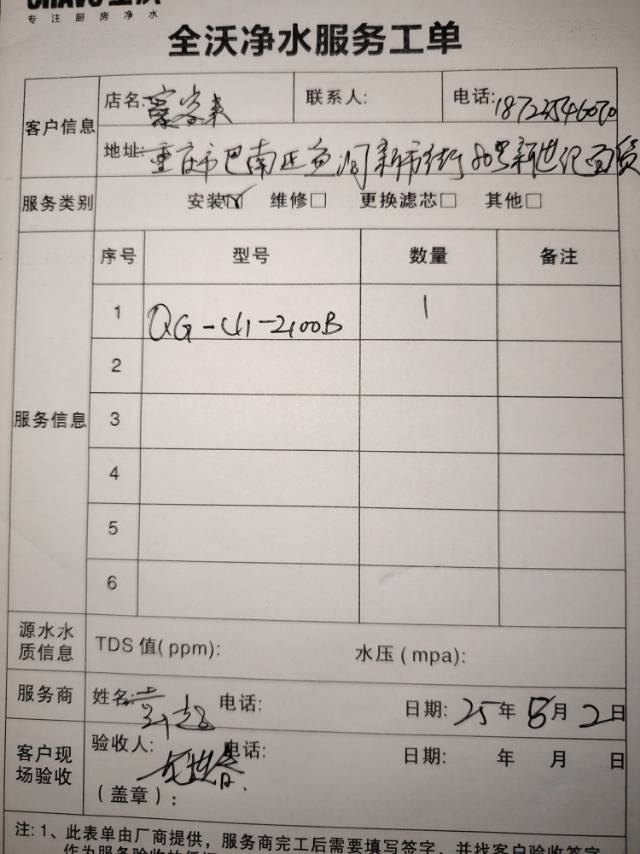 专注厨房净水
全沃净水服务工单
客户信息 店名: 联系人: 电话: 18723546070
地址: 重庆市巴南区鱼洞新市街80号新世纪百货
服务类别 安装☑ 维修□ 更换滤芯□ 其他□
序号 型号 数量 备注
服务信息
1 QG-U1-2100B 1
2
3
4
5
6
源水水质信息 TDS 值(ppm): 水压(mpa):
服务商 姓名: 电话: 日期: 25年5月2日
客户现场验收 验收人: 电话: 日期: 年 月 日
(盖章):
注: 1、此表单由厂商提供，服务商完工后需要填写签字，并找客户验收签字